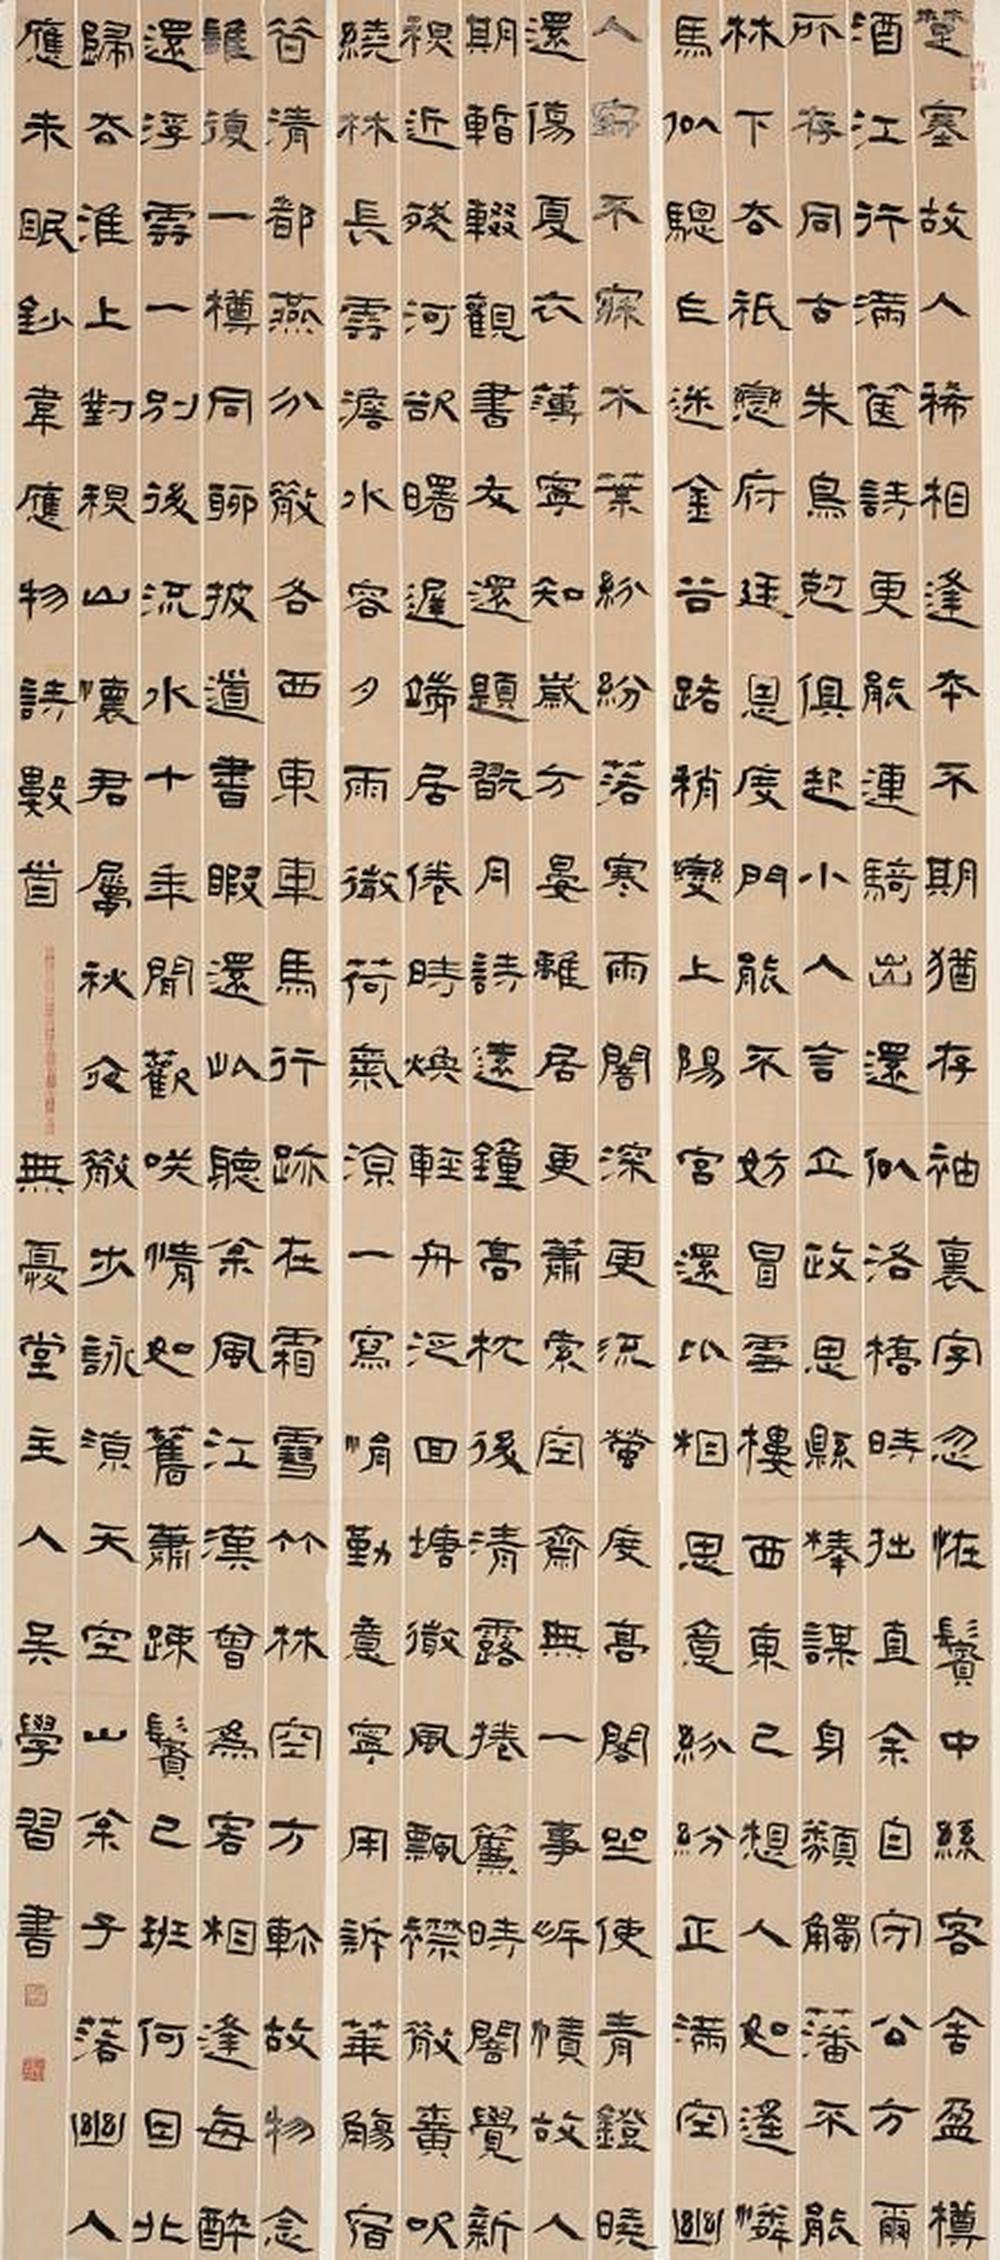 楚塞故人稀相逢本不期猶存袖裏字忽怪鬢中絲客舍盈樽
酒江行滿篋詩更能連騎出還似洛橋時拙直余自守公方爾
所存同古朱鳥剋俱起小人言立政思縣棒謀身類觸藩不能
林下去祇戀府廷恩度門能不妨冒雪樓西東已想人如遙憐
馬似驄乍迷金谷路稍變上陽宮還比相思意紛紛正滿空幽
人寂不寐木葉紛紛落寒雨闇深更流螢度高閣坐使青鐙曉
還傷夏衣薄寧知歲方晏離居更蕭索空齋無一事岸幘故人
期暫輟觀書夜還題翫月詩遠鐘高枕後清露捲簾時闇覺新
秋近殘河欲曙遲端居倦時燠輕舟泛回塘微風飄襟散橫吹
繞林長雲澹水容夕雨微荷氣涼一寫悁勤意寧用訴華觴宿
昔清都燕分散各西東車馬行跡在霜雪竹林空方軫故物念
誰復一樽同聊披道書暇還此聽松風江漢曾為客相逢每醉
還浮雲一別後流水十年間歡笑情如舊蕭疎鬢已班何因北
歸去淮上對秋山懷君屬秋夜散步詠涼天空山松子落幽人
應未眠鈔韋應物詩數首 無憂堂主人吳學習書